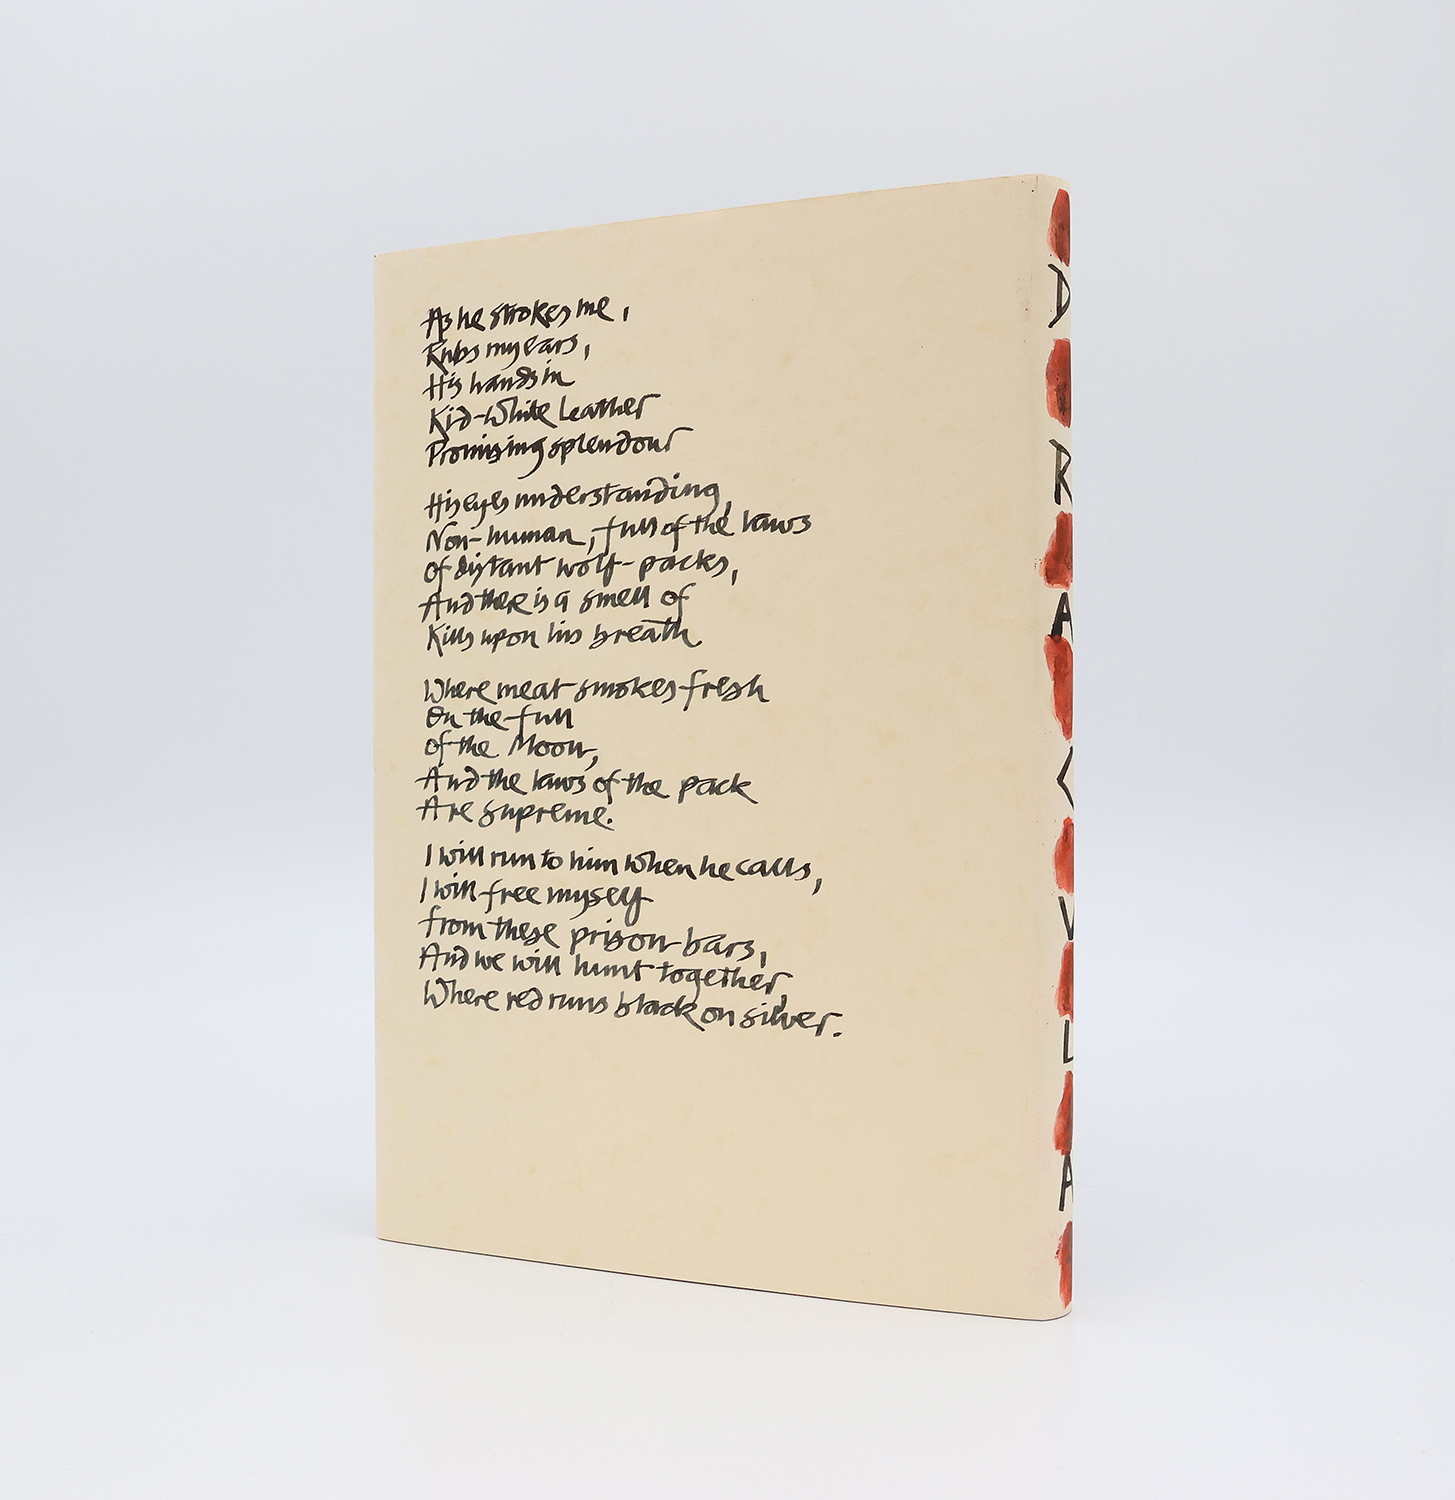 As he strokes me,
Rubs my ears,
His hands in
Kid-White leather
Promising splendour
His eyes understanding,
Non-human, full of the laws
Of distant wolf-packs,
And there is a smell of
Kills upon his breath
Where meat smokes fresh
On the full
of the Moon,
And the laws of the pack
Are supreme.
I will run to him when he calls,
I will free myself
from these prison bars,
And we will hunt together
Where red runs black on silver.
DRACULA